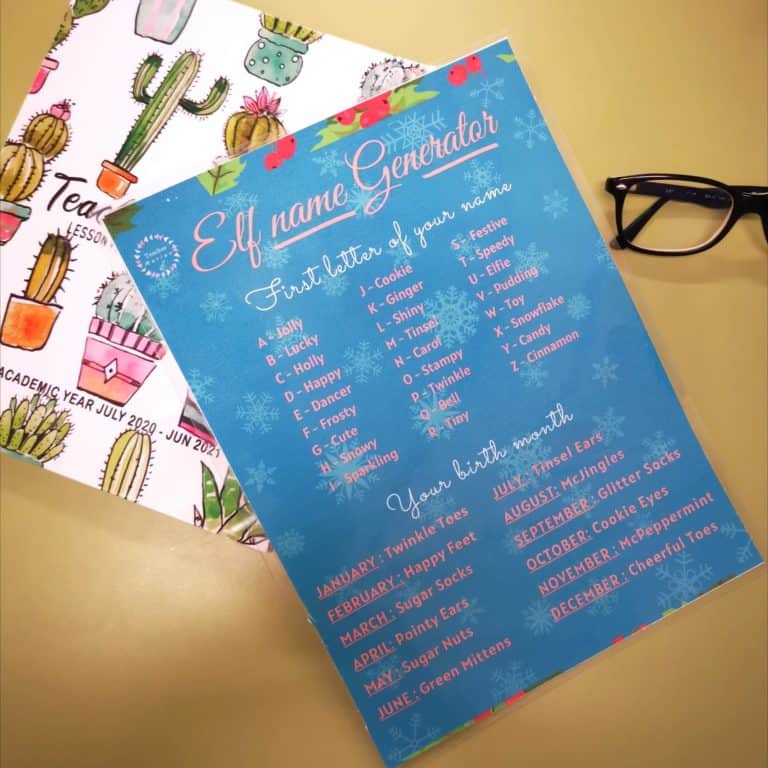 Teac
LESSON
ACADEMIC YEAR JULY 2020 - JUN 2021
Elf name Generator
First letter of your name
A - Jolly
B - Lucky
C - Holly
D - Happy
E - Dancer
F - Frosty
G - Cute
H - Snowy
I - Sparkling
J - Cookie
K - Ginger
L - Shiny
M - Tinsel
N - Carol
O - Stampy
P - Twinkle
Q - Bell
R - Tiny
S - Festive
T - Speedy
U - Elfie
V - Pudding
W - Toy
X - Snowflake
Y - Candy
Z - Cinnamon
Your birth month
JANUARY : Twinkle Toes
FEBRUARY : Happy Feet
MARCH : Sugar Socks
APRIL : Pointy Ears
MAY : Sugar Nuts
JUNE : Green Mittens
JULY : Tinsel Ears
AUGUST: McJingles
SEPTEMBER : Glitter Socks
OCTOBER: Cookie Eyes
NOVEMBER : McPeppermint
DECEMBER : Cheerful Toes